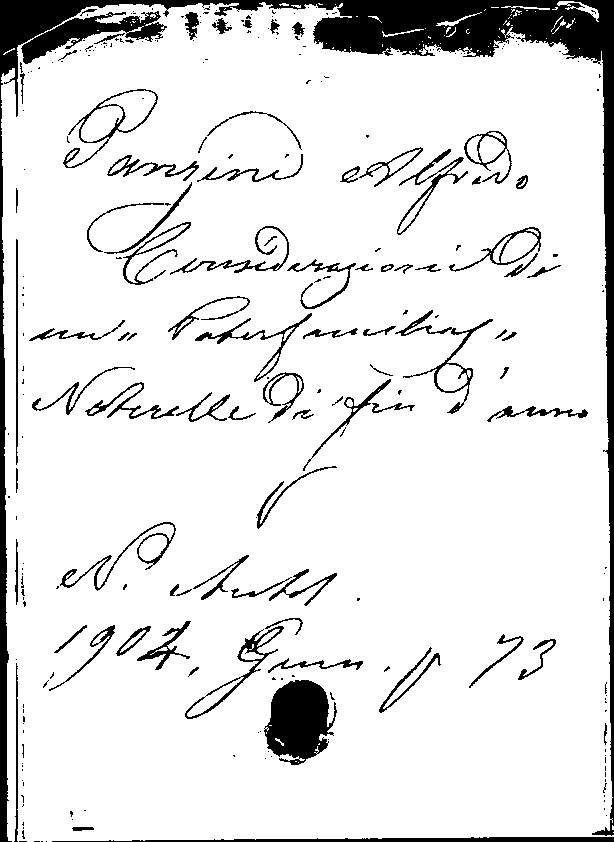 Panzini Alfredo
Considerazioni di
un " Paterfamilias "
Noterelle di fin d'anno
N. Antol.
1902, Genn. p 73